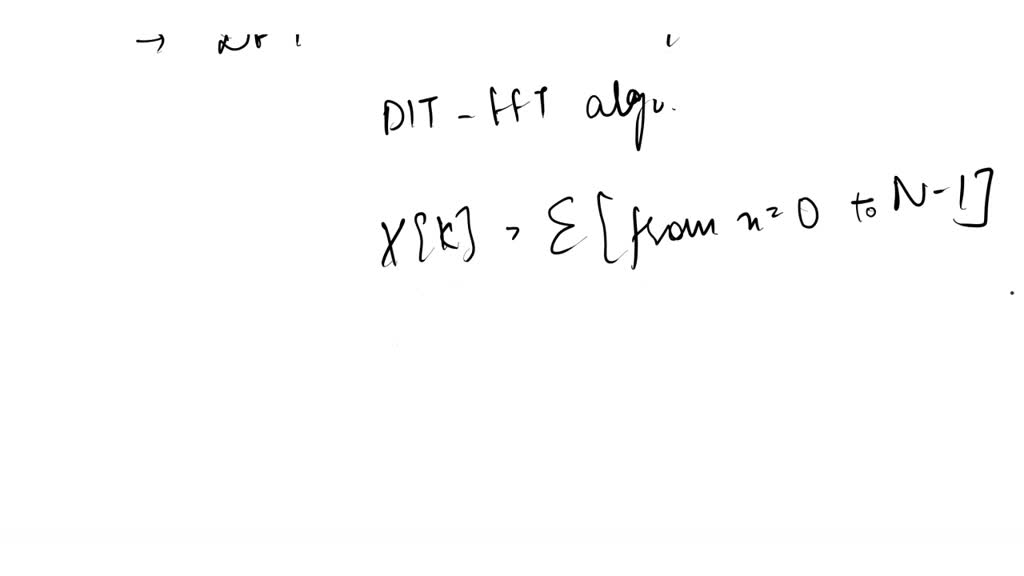 DIT - FFT algo.
X[K] = Σ [from n=0 to N-1]